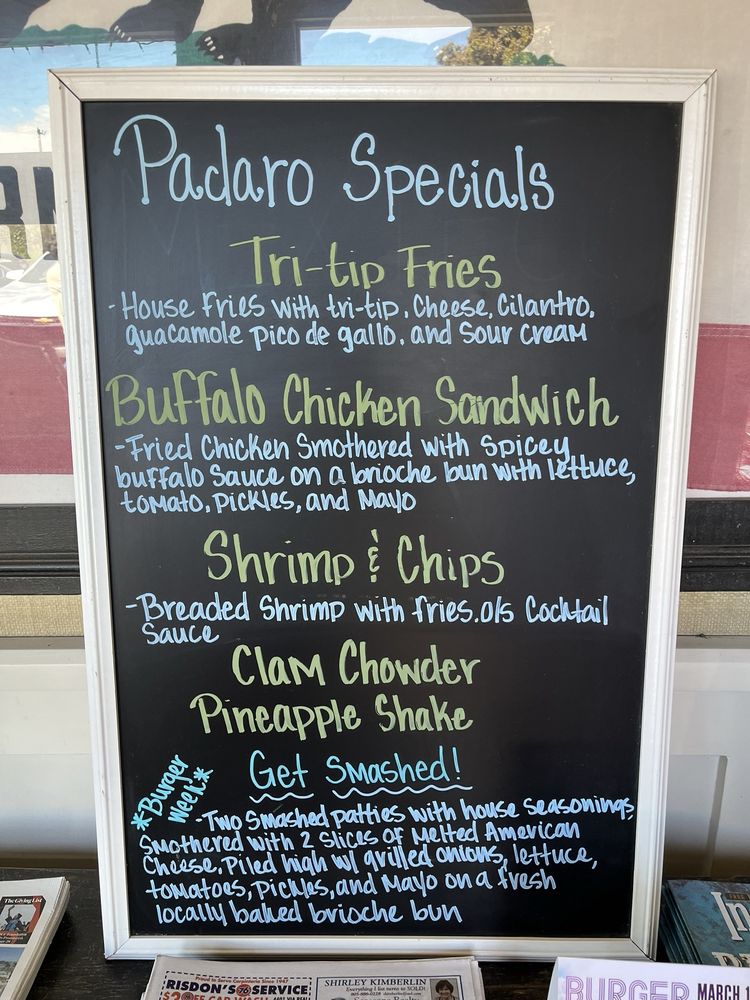 Padaro Specials
Tri-tip Fries
-House fries with tri-tip, Cheese, Cilantro,
guacamole pico de gallo, and sour cream
Buffalo Chicken Sandwich
-Fried Chicken Smothered with Spicey
buffalo Sauce on a brioche bun with lettuce,
tomato, pickles, and Mayo
Shrimp & Chips
-Breaded Shrimp with fries. o/s Cocktail
Sauce
Clam Chowder
Pineapple Shake
Get Smashed!
*Burger
Week*
-Two Smashed patties with house seasonings
Smothered with 2 slices of Melted American
Cheese, Piled high w/ grilled onions, lettuce,
tomatoes, pickles, and Mayo on a fresh
locally baked brioche bun
The Giving List
Proud to Serve Carpinteria Since 1947
RISDON'S 76 SERVICE
SHIRLEY KIMBERLIN
Everything I list turns to SOLD!
BURGER
MARCH